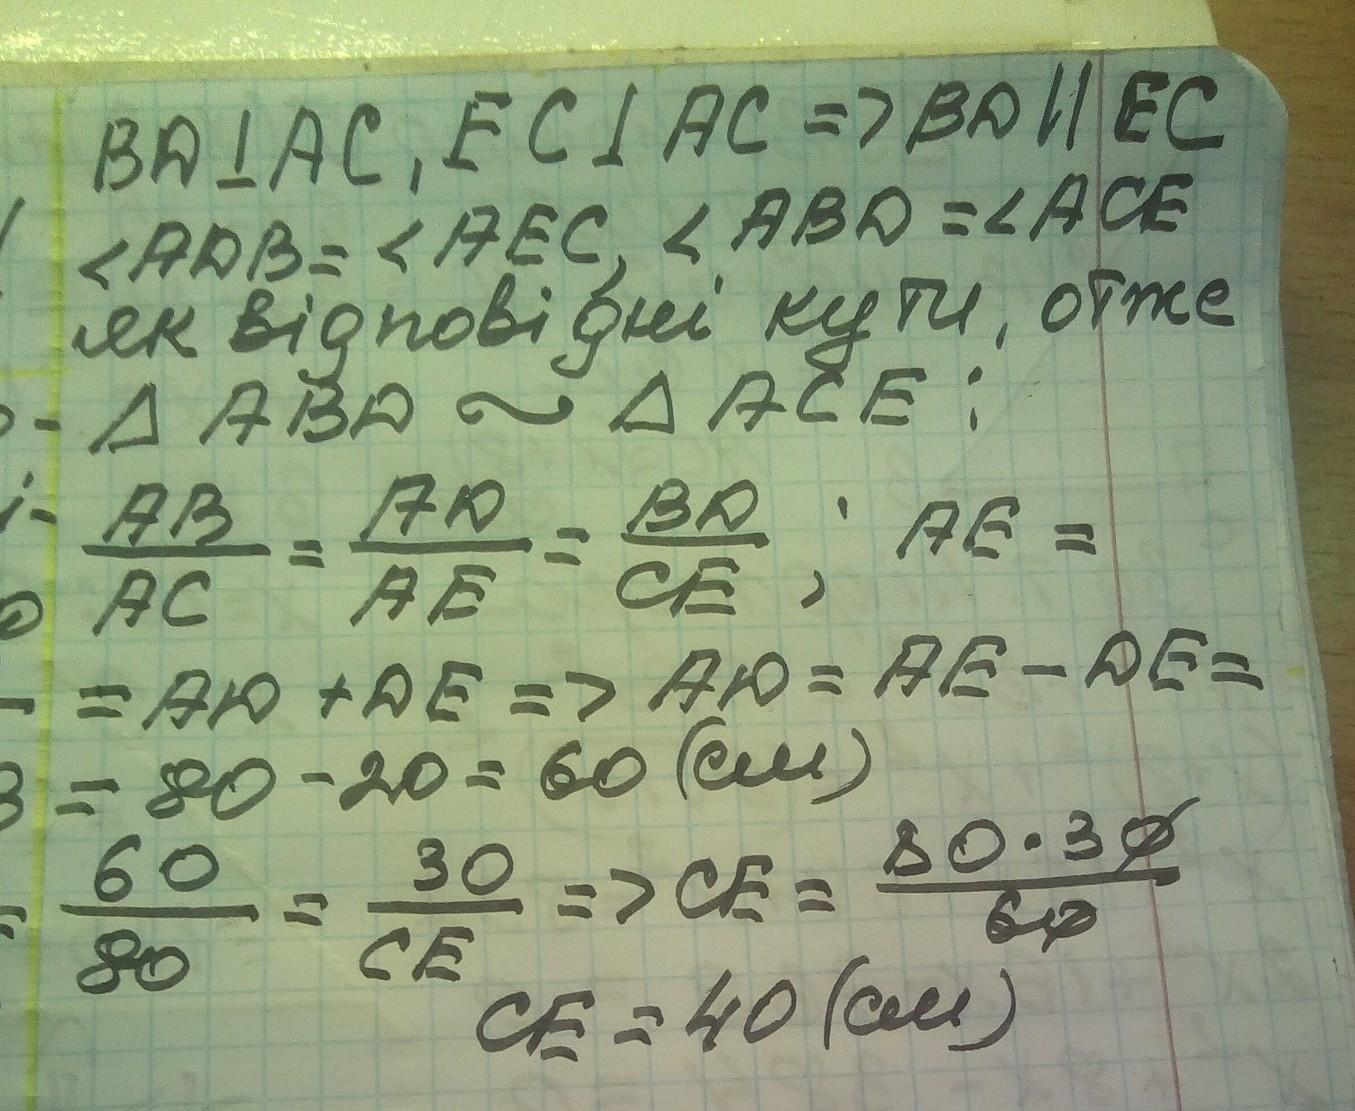 BD⊥AC, EC⊥AC => BD || EC
<ADB = <AEC, <ABD = <ACE
як відповідні кути, отже
Δ ABD ~ Δ ACE ;
AB/AC = AD/AE = BD/CE ; AE =
= AD + DE => AD = AE - DE =
= 80 - 20 = 60 (см)
60/80 = 30/CE => CE = 80·30/60
CE = 40 (см)